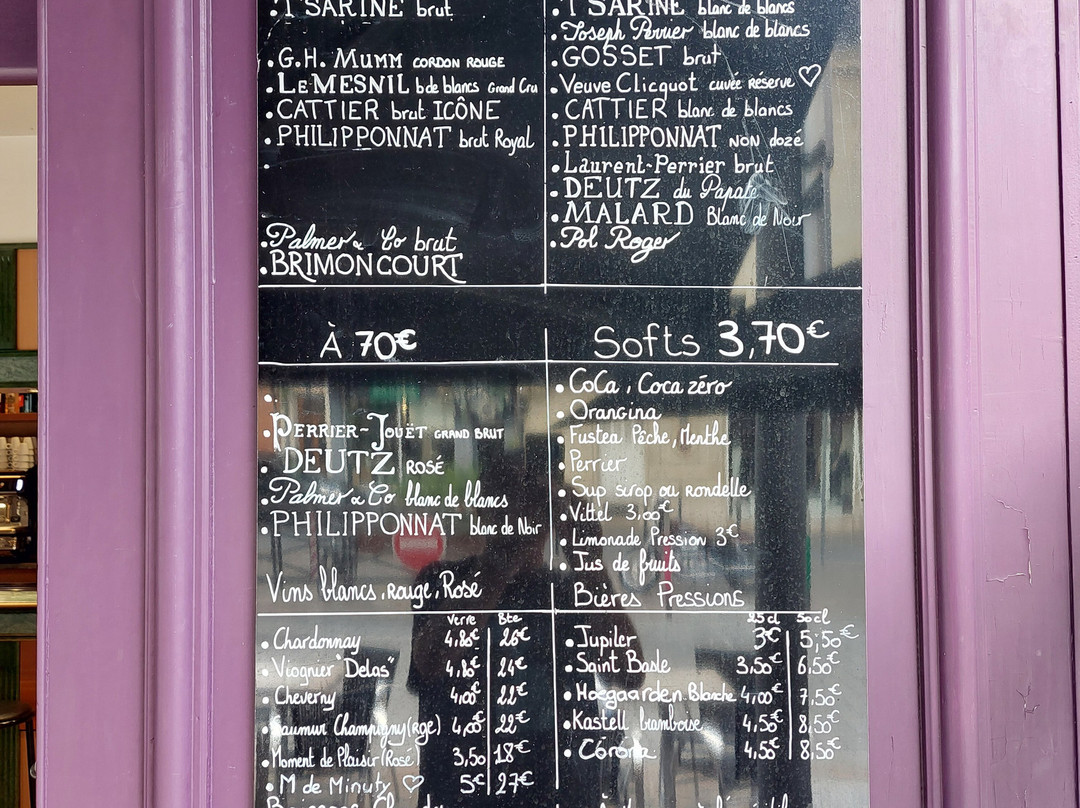 TSARINE brut
G.H. MUMM CORDON ROUGE
LE MESNIL b de blancs Grand Cru
CATTIER brut ICÔNE
PHILIPPONNAT brut Royal
Palmer & Co brut
BRIMONCOURT
TSARINE blanc de blancs
Joseph Perrier blanc de blancs
GOSSET brut
Veuve Clicquot cuvée réserve ♡
CATTIER blanc de blancs
PHILIPPONNAT NON dozé
Laurent-Perrier brut
DEUTZ du Papate
MALARD Blanc de Noir
Pol Roger
À 70€
PERRIER-JOUËT GRAND BRUT
DEUTZ ROSÉ
Palmer & Co blanc de blancs
PHILIPPONNAT blanc de Noir
Softs 3,70€
CoCa, Coca zéro
Orangina
Fustea Pêche, Menthe
Perrier
Sup sirop ou Rondelle
Vittel 3,00€
Limonade Pression 3€
Jus de fruits
Vins blancs, rouge, Rosé
Verre Bte
Chardonnay 4,80€ 26€
Viognier "Delas" 4,80€ 24€
Cheverny 4,00€ 22€
Saumur Champigny (rge) 4,00€ 22€
Moment de Plaisir (Rosé) 3,50 18€
M de Minuty ♡ 5€ 27€
Bières Pressions
25cl 50cl
Jupiler 3€ 5,50€
Saint Basle 3,50€ 6,50€
Hoegaarden Blanche 4,00€ 7,50€
Kastell framboise 4,50€ 8,50€
Corona 4,50€ 8,50€